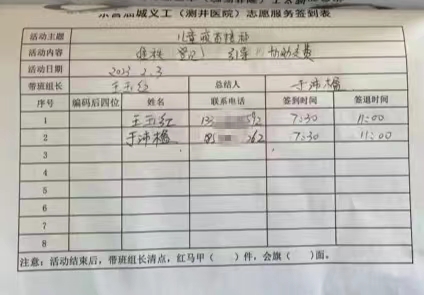 义工（测井医院）志愿服务签到表
活动主题 儿童疫苗接种
活动内容 登记 引导
活动日期 2023 2.3
带班组长 王玉红 总结人 于沛楠
序号 编码后四位 姓名 联系电话 签到时间 签退时间
1 王玉红 133 592 7:30 11:00
2 于沛楠 262 7:30 11:00
3
4
5
6
7
8
注意：活动结束后，带班组长清点，红马甲（ ）件，会旗（ ）面。